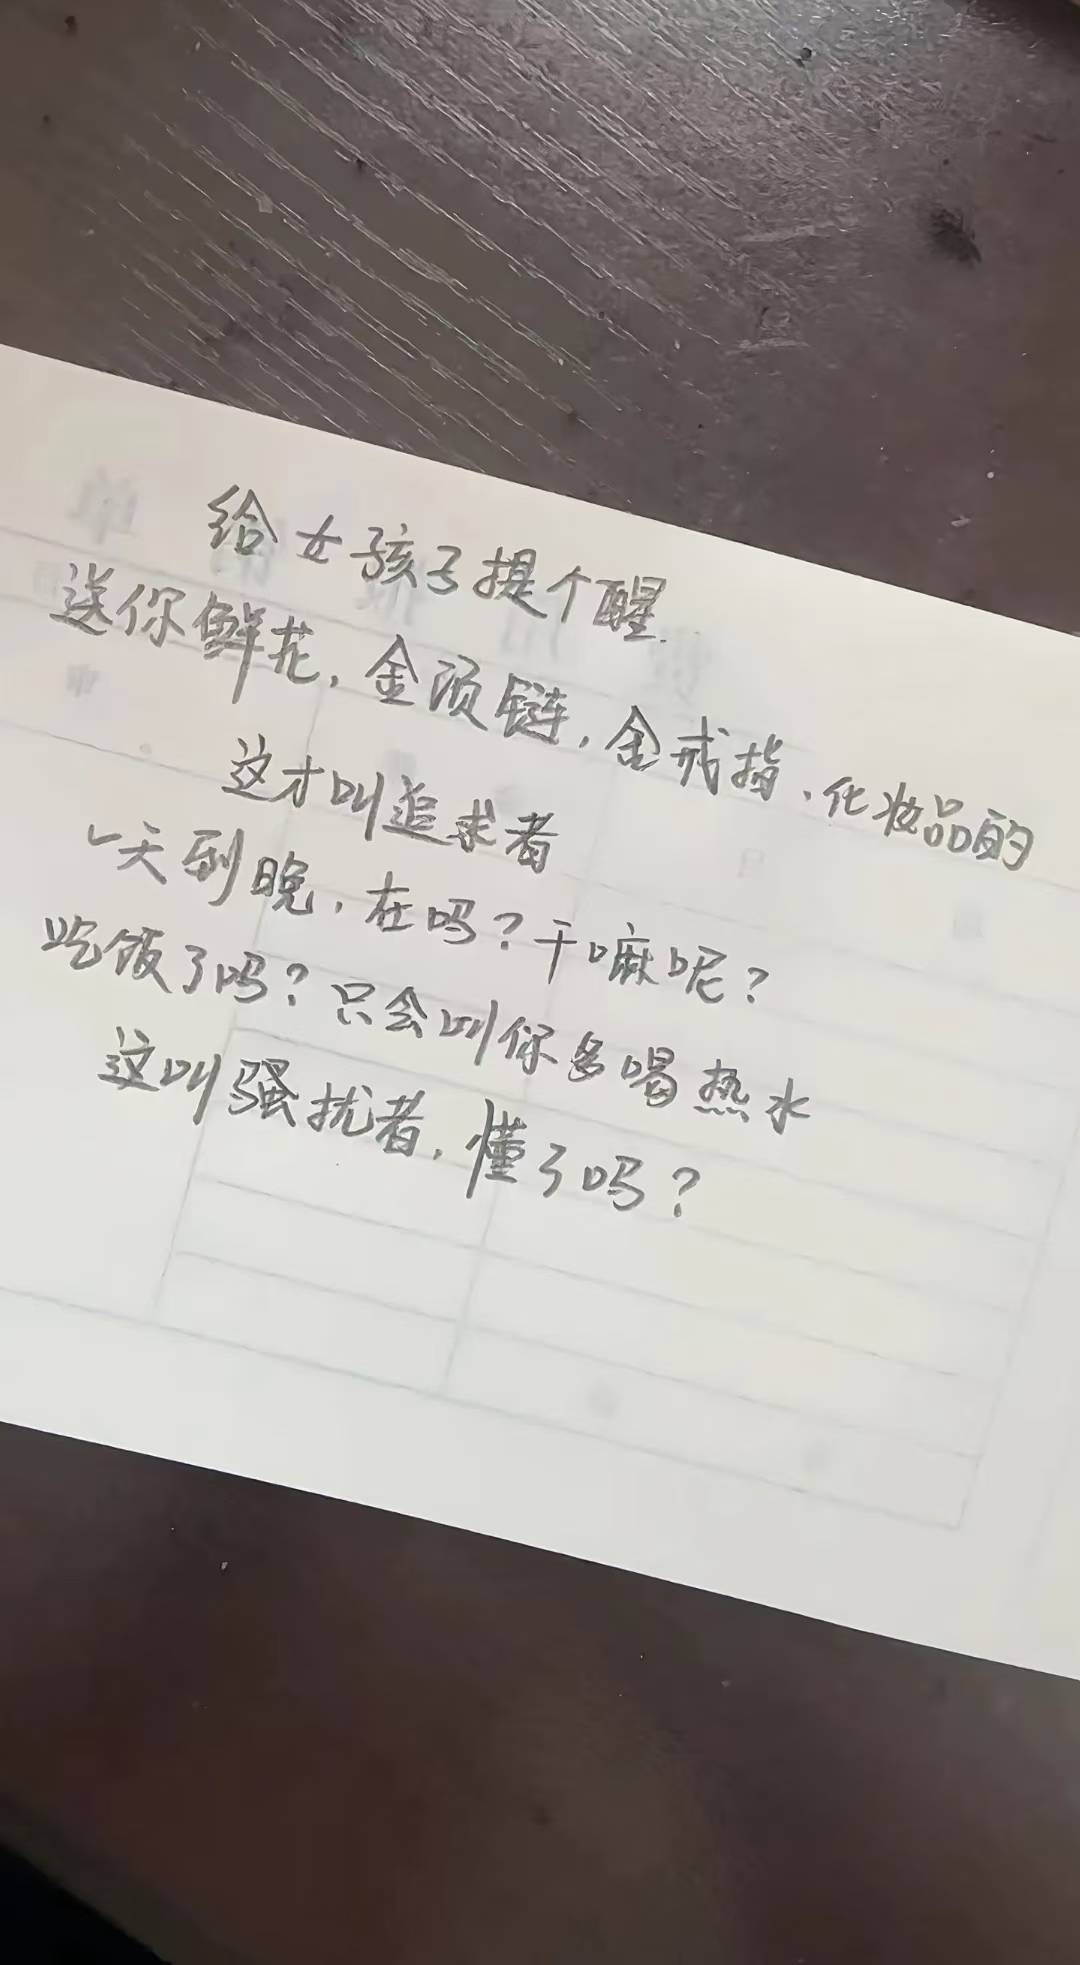 给女孩子提个醒.
送你鲜花,金项链,金戒指、化妆品的
这才叫追求者
一天到晚,在吗?干嘛呢?
吃饭了吗?只会叫你多喝热水
这叫骚扰者,懂了吗?